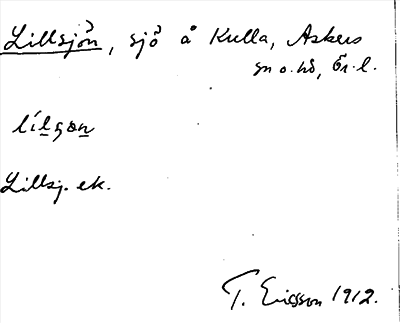 Lillsjön, sjö å Kulla, Askers
sn o. hd, Ör. l.
lílşøn
Lillsj. ek.
T. Ericsson 1912.